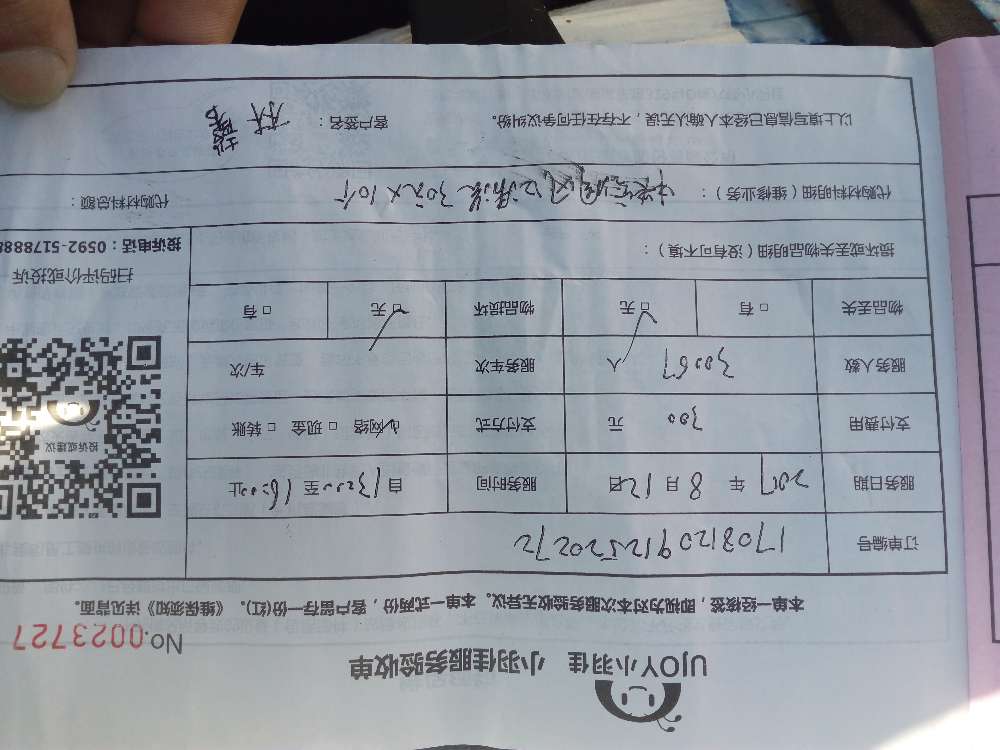 UJOY小羽佳 小羽佳服务验收单
No.0023727
本单一经接签，即视为对本次服务验收无异议。本单一式两份，客户留存一份(红)。《维保须知》详见背面。
订单编号 17081209125520272
服务日期 2017 年 8 月 12 日 服务时间 自 13:00 至 16:00 止
支付费用 300 元 支付方式 ☑网络 □现金 □转账
服务人数 30067 人 服务车次 车/次
物品丢失 □有 ☑无 物品损坏 ☑无 □有
损坏或丢失物品明细（没有可不填）：
投诉或建议
扫码评价或投诉
投诉电话：0592-5178888
代购材料明细（维修业务）： 风口清洗 30元×10个
代购材料总额：
以上填写信息已经本人确认无误，不存在任何争议纠纷。 客户签名： 林